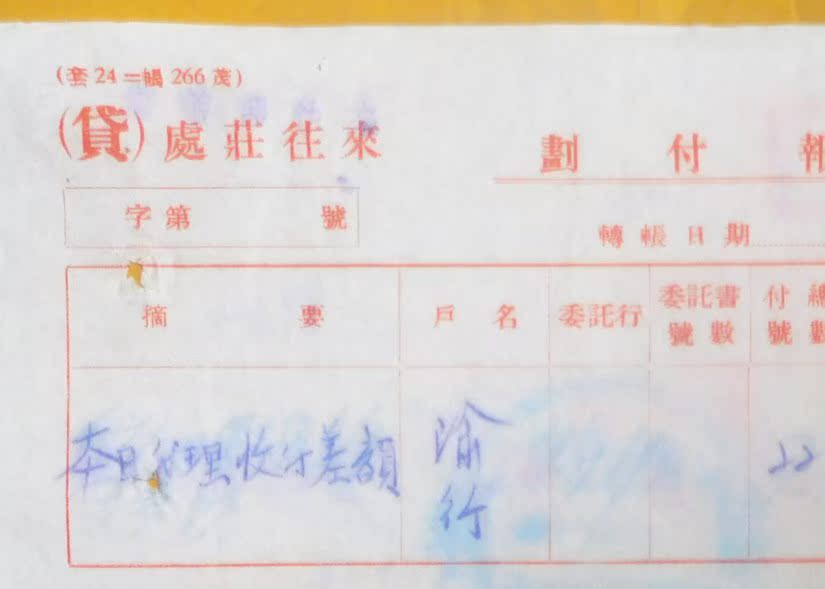 (套24=帳266茂)
(貸)處莊往來
劃付報
字第 號
轉帳日期
摘要 戶名 委託行 委託書號數 付總號數
本日代理收付差額 渝行 22